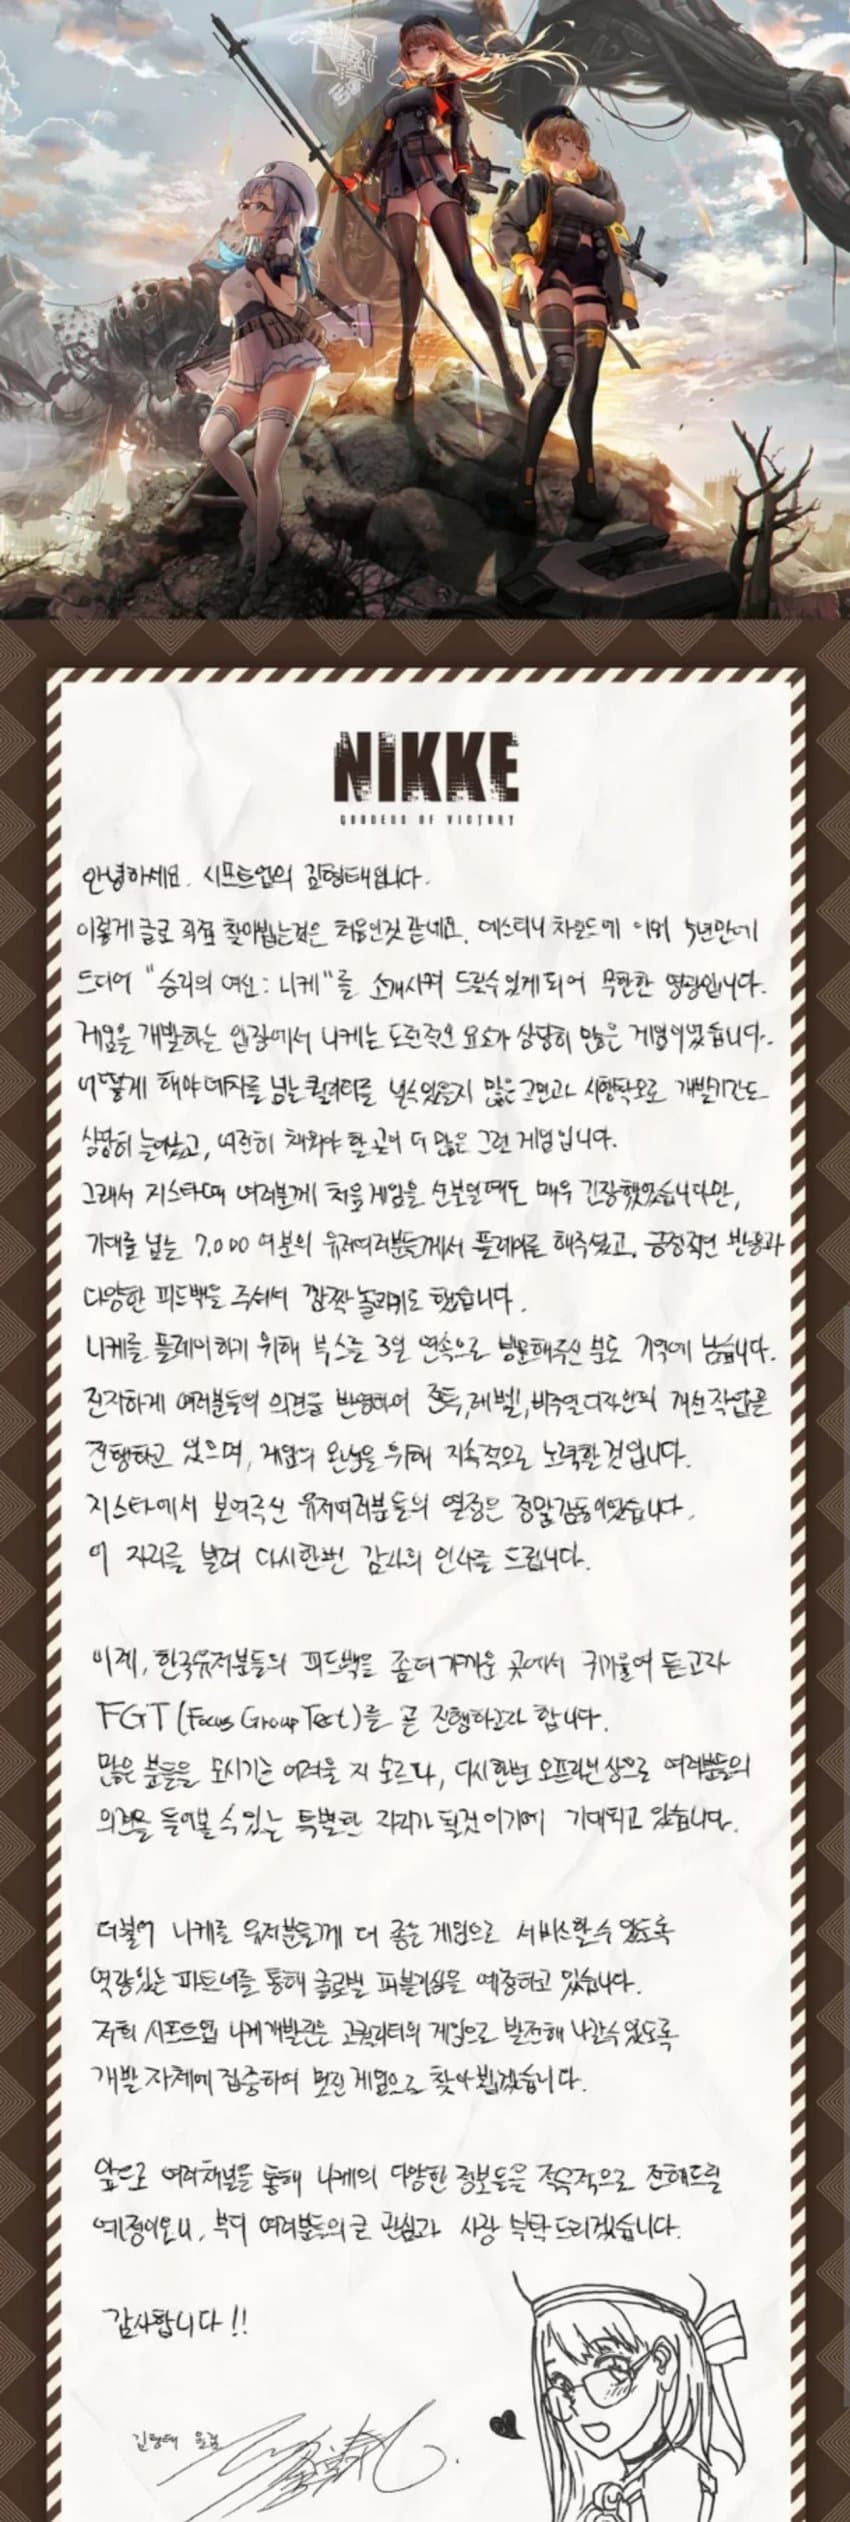 NIKKE
GODDESS OF VICTORY
안녕하세요. 시프트업의 김형태입니다.
이렇게 글로 직접 찾아뵙는것은 처음인것 같네요. 데스티니 차일드에 이어 5년만에
드디어 "승리의 여신: 니케"를 소개시켜 드릴수 있게 되어 무한한 영광입니다.
게임을 개발하는 입장에서 니케는 도전적인 요소가 상당히 많은 게임이었습니다.
어떻게 해야 데차를 넘는 퀄리티를 낼수있을지 많은 고민과 시행착오로 개발기간도
상당히 늘어났고, 여전히 채워야 할 곳이 더 많은 그런 게임입니다.
그래서 지스타때 여러분께 처음 게임을 선보일때도 매우 긴장했었습니다만,
기대를 넘는 7,000 여분의 유저여러분들께서 플레이를 해주셨고, 긍정적인 반응과
다양한 피드백을 주셔서 깜짝 놀라기도 했습니다.
니케를 플레이하기 위해 부스를 3일 연속으로 방문해주신 분도 기억에 남습니다.
진지하게 여러분들의 의견을 반영하여 전투, 레벨, 비주얼디자인의 개선작업을
진행하고 있으며, 게임의 완성을 위해 지속적으로 노력할것입니다.
지스타에서 보여주신 유저여러분들의 열정은 정말감동이었습니다.
이 자리를 빌려 다시한번 감사의 인사를 드립니다.
이제, 한국유저분들의 피드백을 좀더 가까운 곳에서 귀기울여 듣고자
FGT (Focus Group Test)를 곧 진행하고자 합니다.
많은 분들을 모시기는 어려울 지 모르나, 다시한번 오프라인 상으로 여러분들의
의견을 들어볼 수 있는 특별한 자리가 될것 이기에 기대되고 있습니다.
더불어 니케를 유저분들께 더 좋은 게임으로 서비스할수 있도록
역량있는 파트너를 통해 글로벌 퍼블리싱을 예정하고 있습니다.
저희 시프트업 니케개발진은 고퀄리티의 게임으로 발전해 나갈수있도록
개발 자체에 집중하여 멋진 게임으로 찾아 뵙겠습니다.
앞으로 여러채널을 통해 니케의 다양한 정보들을 적극적으로 전해드릴
예정이오니, 부디 여러분들의 큰 관심과 사랑 부탁드리겠습니다.
감사합니다 !!
김형태 올림